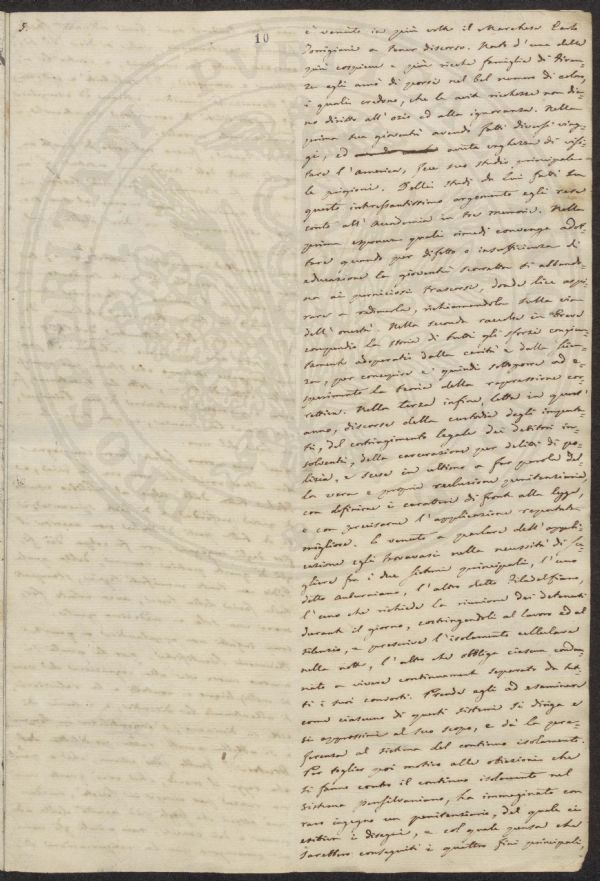 5.
10
è venuto in più volte il Marchese Carlo
Torrigiani a tener discorso. Nato d'una delle
più cospicue e più ricche famiglie di Firen-
ze egli amò di porsi nel bel numero di coloro,
i quali credono, che le avite ricchezze non dia-
no diritto all'ozio ed alla ignoranza. Nella
prima sua gioventù avendo fatti diversi viag-
gi, ed avuta vaghezza di visi-
tare l'America, fece suo studio principale
le prigioni. Dallli studi da lui fatti su
questo interessantissimo argomento egli rese
conto all'Accademia in tre memorie. Nella
prima esponeva quali rimedi convenga adot-
tare quando per difetto o insufficienza di
educazione la gioventù scorretta si abbando-
na ai perniciosi trascorsi, donde lice aspi-
rare a redimerla, richiamandola sulla via
dell'onestà. Nella seconda raccolse in breve
compendio la storia di tutti gli sforzi congiun-
tamente adoperati dalla carità e dalla scien-
za, per concepire e quindi sottoporre ad e-
sperimento la teoria della repressione cor-
rettiva. Nella terza infine, letta in quest'
anno, discorse della custodia degli imputa-
ti, del costringimento legale dei debitori in-
solventi, della carcerazione per delitti di po-
lizia, e scese in ultimo a far parola del-
la vera e propria reclusione penitenziaria
con definirne i caratteri di fronte alla legge,
e con precisarne l'applicazione reputata
migliore. E venuto a parlare dell'appli-
cazione egli trovavasi nella necessità di sce-
gliere fra i due sistemi principali, l'uno
detto Auburniano, l'altro detto Filadelfiano,
l'uno che richiede la riunione dei detenuti
durante il giorno, costringendoli al lavoro ed al
silenzio, e prescrive l'isolamento cellulare
nella notte, l'altro che obbliga ciascun condan-
nato a vivere continuamente separato da tut-
ti i suoi consorti. Prende egli ad esaminare
come ciascuno di questi sistemi si diriga e
si approssimi al suo scopo, e dà la pre-
ferenza al sistema del continuo isolamento.
Poi toglie poi motivo alle obiezioni che
si fanno contro il continuo isolamento nel
sistema pensilvaniano, ha immaginato con
raro ingegno un penitenziario, del quale ci
esibiva i disegni, e col quale pensa che
sarebbero conseguiti i quattro fini principali,